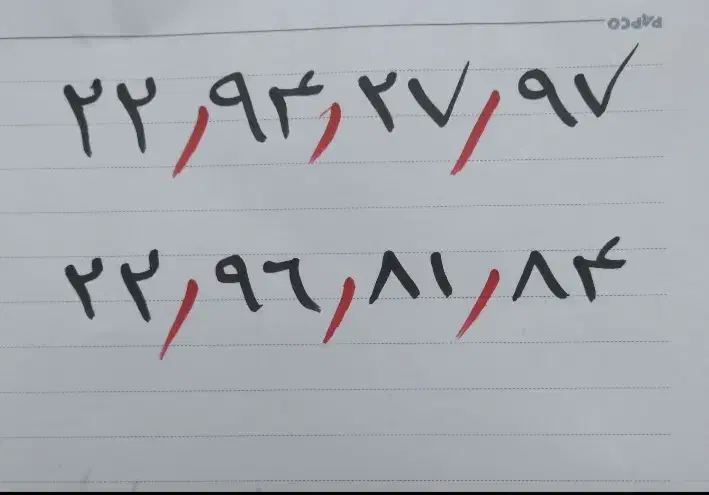 PAPCO
۲۲٫۹۴٫۲۷٫۹۷
۲۲٫۹٦٫۸۱٫۸۴